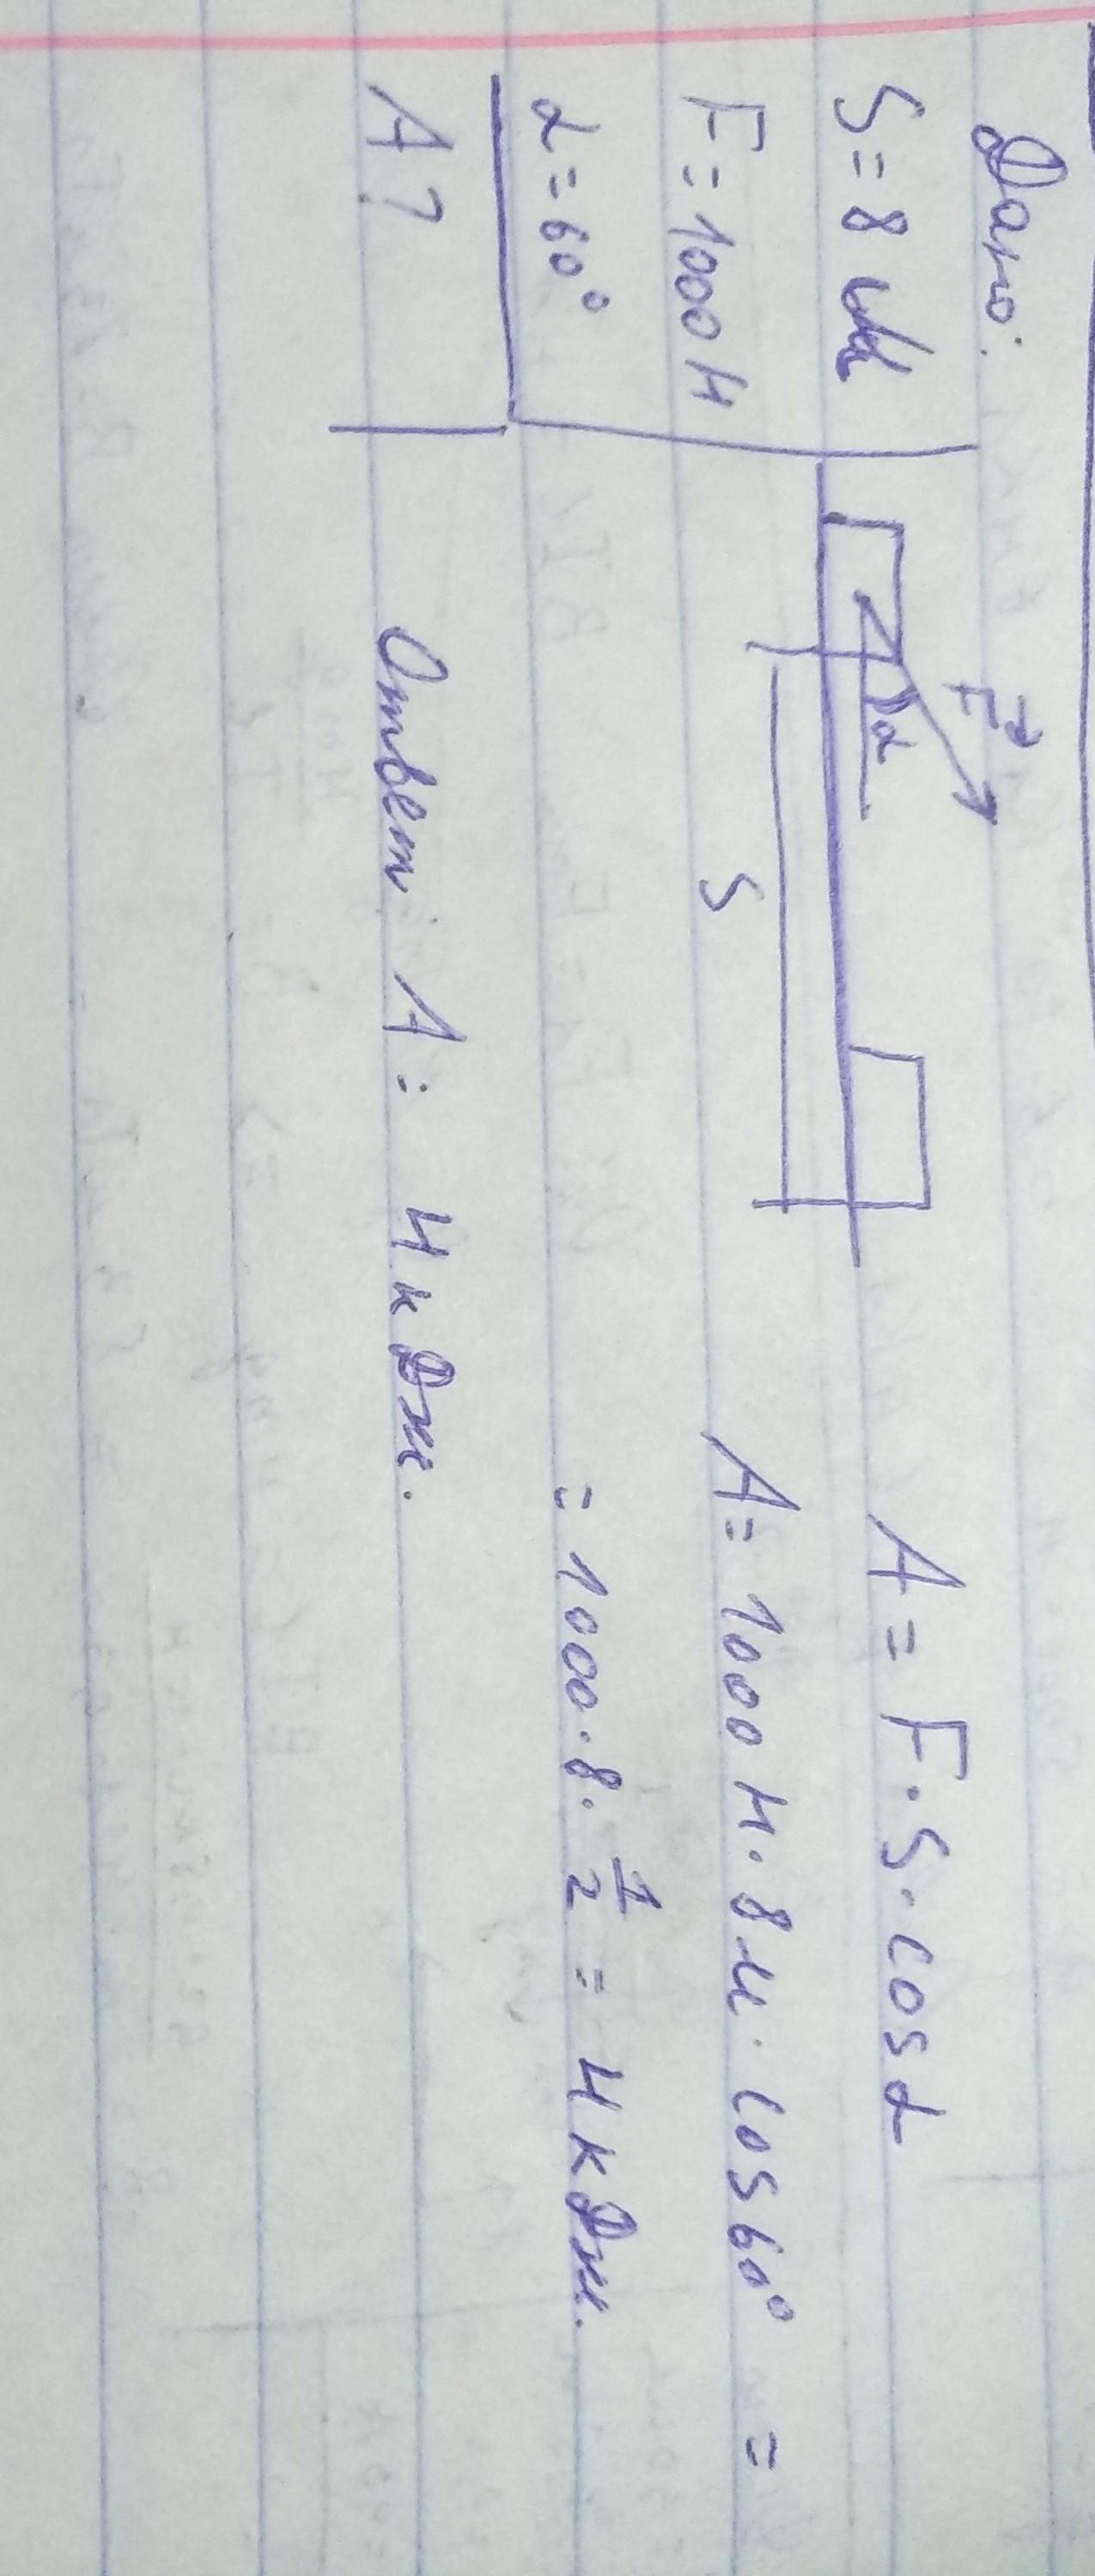 Дано:
S = 8 м
F = 1000 Н
α = 60°
A ?
F⃗
α
S
A = F · S · cos α
A = 1000 Н · 8 м · cos 60° =
= 1000 · 8 · 1/2 = 4 кДж.
Ответ: A = 4 кДж.